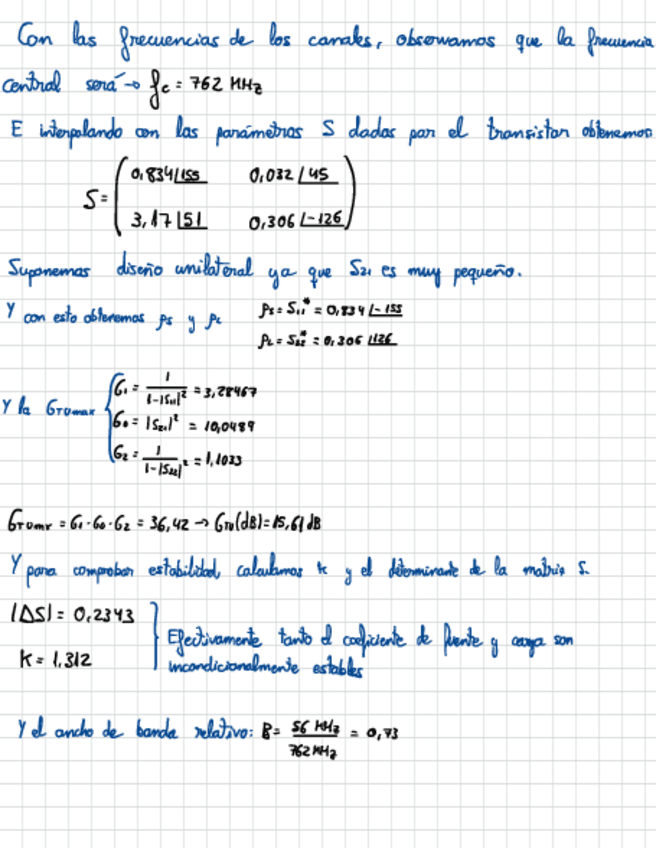 Con las frecuencias de los canales, observamos que la frecuencia
central será → fc = 762 MHz
E interpolando con los parámetros S dados por el transistor obtenemos
S = ( 0,834∠155   0,032∠45
3,17∠51   0,306∠-126 )
Suponemos diseño unilateral ya que S21 es muy pequeño.
Y con esto obtenemos ρs y ρL   ρs = S11* = 0,834∠-155
ρL = S22* = 0,306∠126
Y la GTUmax { G1 = 1/(1-|S11|²) = 3,28467
G0 = |S21|² = 10,0489
G2 = 1/(1-|S22|²) = 1,1033
GTUmx = G1·G0·G2 = 36,42 → GTU(dB) = 15,61 dB
Y para comprobar estabilidad, calculamos k y el determinante de la matriz S.
|ΔS| = 0,2343
k = 1,312
Efectivamente tanto el coeficiente de fuente y carga son
incondicionalmente estables
Y el ancho de banda relativo: B = 56 MHz / 762 MHz = 0,73